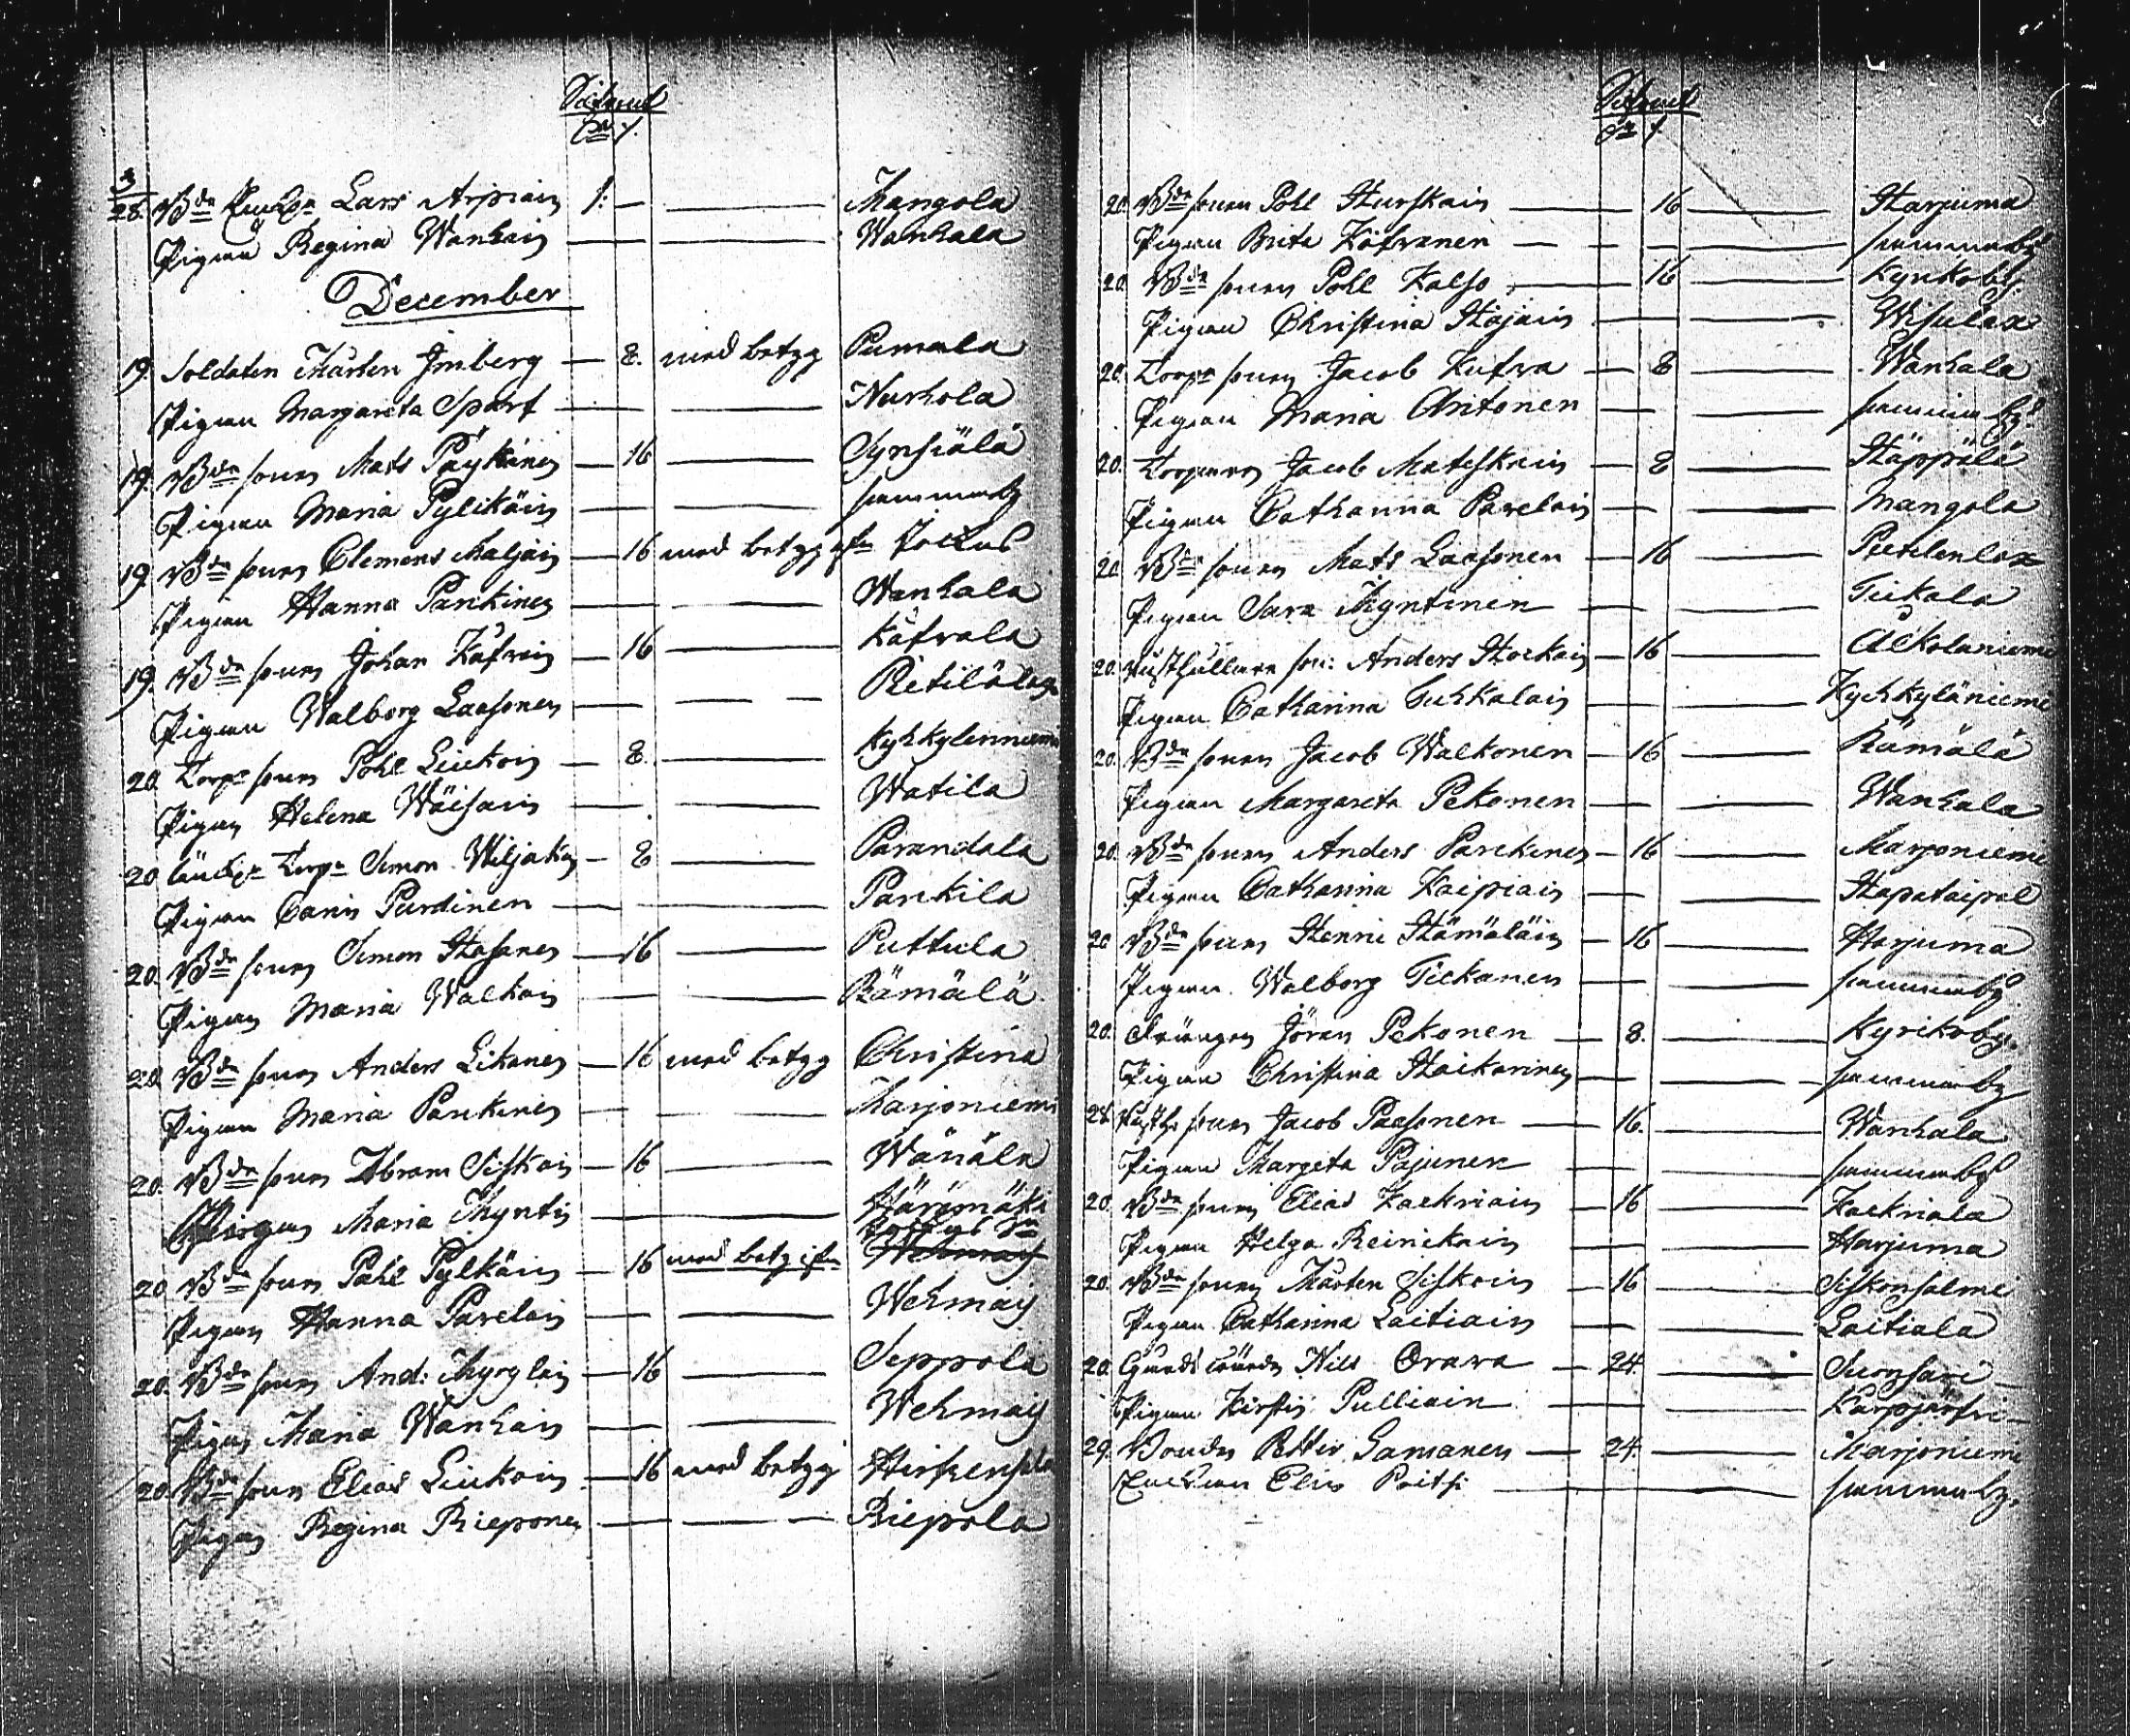 3
28. Bdn Lars Arpiain 1: — — Mangola
Pigan Regina Wanhain — — Wanhala
December
19. Soldaten Mårten Imberg — 8. med betyg Pumala
Pigan Margareta Sparf — — Nurhola
19. Bdn sonen Mats Päykinen — 16 — Synsiälä
Pigan Maria Pylikäin — — samma by
19. Bdn sonen Clemens Maljain — 16 med betyg ifrån Jockas
Pigan Hanna Parikinen — — Wanhala
19. Bdn sonen Johan Käfrein — 16 — Käfrala
Pigan Walborg Laasonen — — Pietilälax
20. Torp sonen Pohl Liukoin — 8. — Kyhkylenniemi
Pigan Helena Wäisäin — — Watila
20 Torpn Simon Wiljakain — 8 — Parandala
Pigan Carin Purdinen — — Pankila
20. Bdn sonen Simon Hasanen — 16 — Puttula
Pigan Maria Walkoin — — Rämälä
20. Bdn sonen Anders Likanen — 16 med betyg Christina
Pigan Maria Parikinen — — Marjoniemi
20. Bdn sonen Abram Siskoin — 16 — Wänälä
Pigan Maria Myntin — — Härämäki
Jockas Sn
20 Bdn sonen Påhl Pylkäin — 16 med betyg ifrån Wehmais
Pigan Hanna Parelain — — Wehmais
20. Bdn sonen And: Myrylain — 16 — Seppola
Pigan Maria Wanhain — — Wehmais
20. Bdn sonen Elias Liukoin — 16 med betyg Hirfvensalo
Pigan Regina Rieponen — — Riepola
20. Bdn sonen Pohl Hurskain — 16 — Harjuma
Pigan Brita Köfvanen — — — samma by
20. Bdn sonen Pohl Kalso — 16 — Kyrkoby.
Pigan Christina Häjäin — — Wisulax
20. Torpr sonen Jacob Kufva — 8 — Wanhala
Pigan Maria Chritonen — — samma by
20. Torparen Jacob Mateskain — 8 — Häppälä
Pigan Catharina Parelain — — Mangola
20. Bdn sonen Mats Laasonen — 16 — Pietilenlax
Pigan Sara Myntinen — — Tiikala
20. Rusthållare son: Anders Hockain — 16 — Alkolaniemi
Pigan Catharina Suhkalain — — Kyhkyläniemi
20. Bdn sonen Jacob Walkonen — 16 — Rämälä
Pigan Margareta Pekonen — — Wanhala
20. Bdn sonen Anders Parikinen — 16 — Marjoniemi
Pigan Catharina Kaipiain — — Hapataipal
20 Bdn sonen Henric Hämäläin — 16 — Harjuma
Pigan Walborg Tiikanen — — samma by
20. Drängen Jöran Pekonen — 8. — Kyrikoby.
Pigan Christina Haikarinen — — samma by
28. Rusth sonen Jacob Paasonen — 16. — Wanhala
Pigan Margeta Pajunen — — samma by
20. Bdn sonen Elias Kackriain — 16 — Kackriala
Pigan Helga Reinikain — — Harjuma
20. Bdn sonen Mårten Siskoin — 16 — Siskonsalmi
Pigan Catharina Laitiain — — Laitiala
20. Nils Orava — 24. — Suonsari
Pigan Kirstin Pulliain — — Karpjärfvi
29. Bonden Petter Samanen — 24. — Marjoniemi
Enkan Elin Poitsi — — samma by.